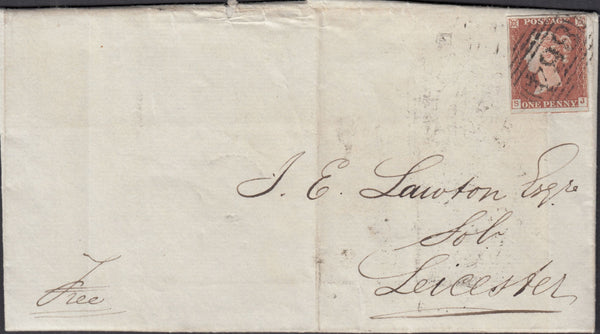 POSTAGE
ONE PENNY
S J
J. E. Lawton Esqre
Solr
Leicester
Free